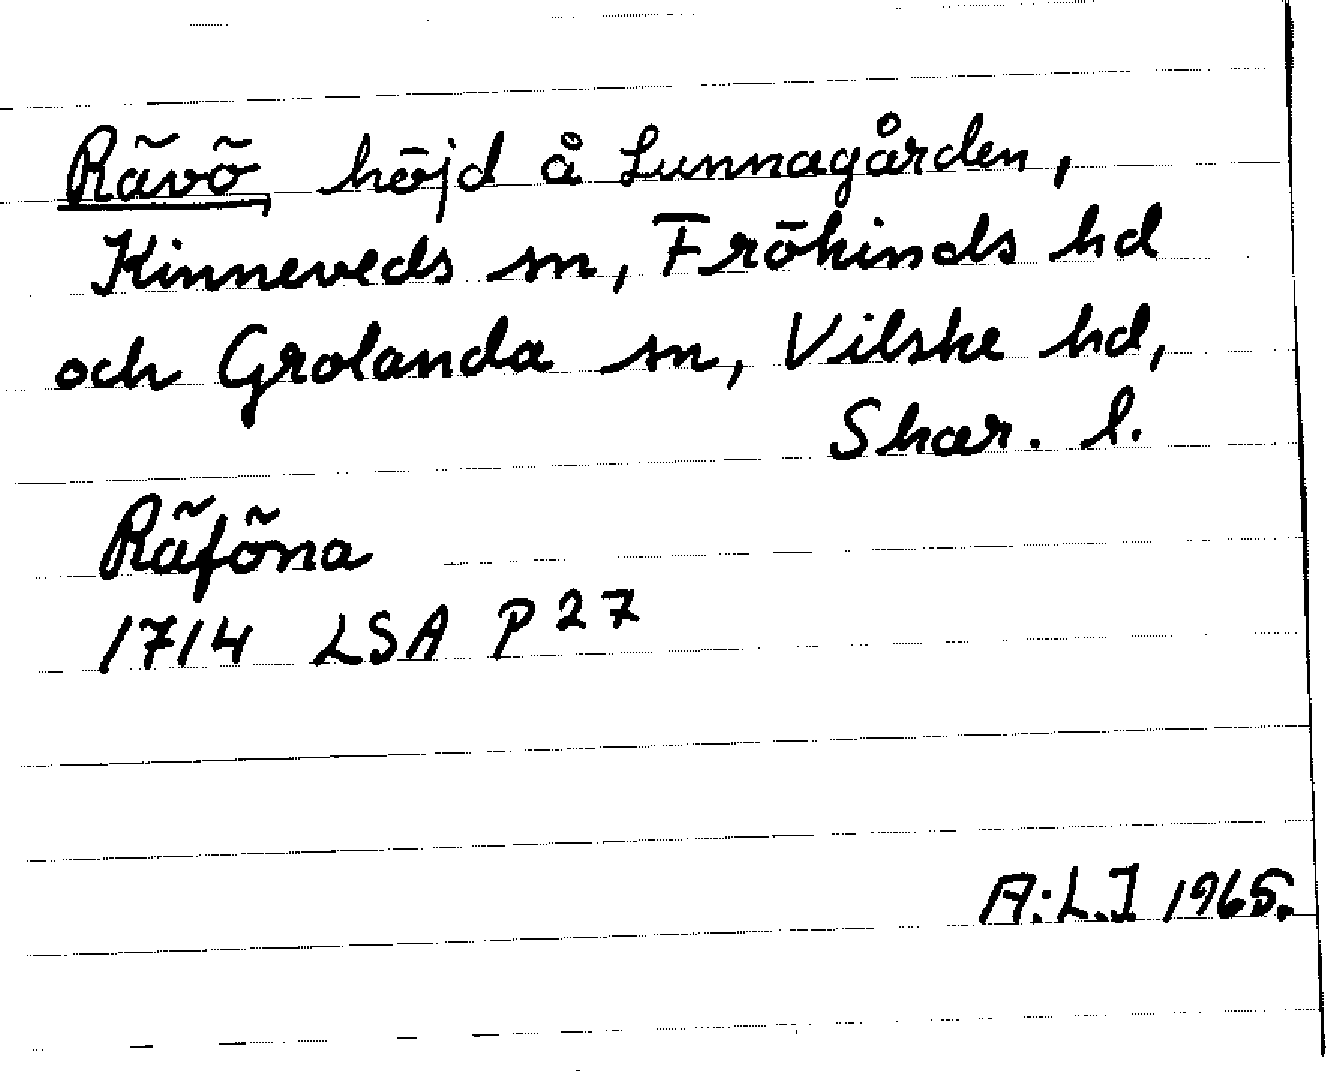 Rävö, höjd å Lunnagården,
Kinneveds sn, Frökinds hd
och Grolanda sn, Vilske hd,
Skar. l.
Räföna
1714 LSA P 27
A.L.J 1965.